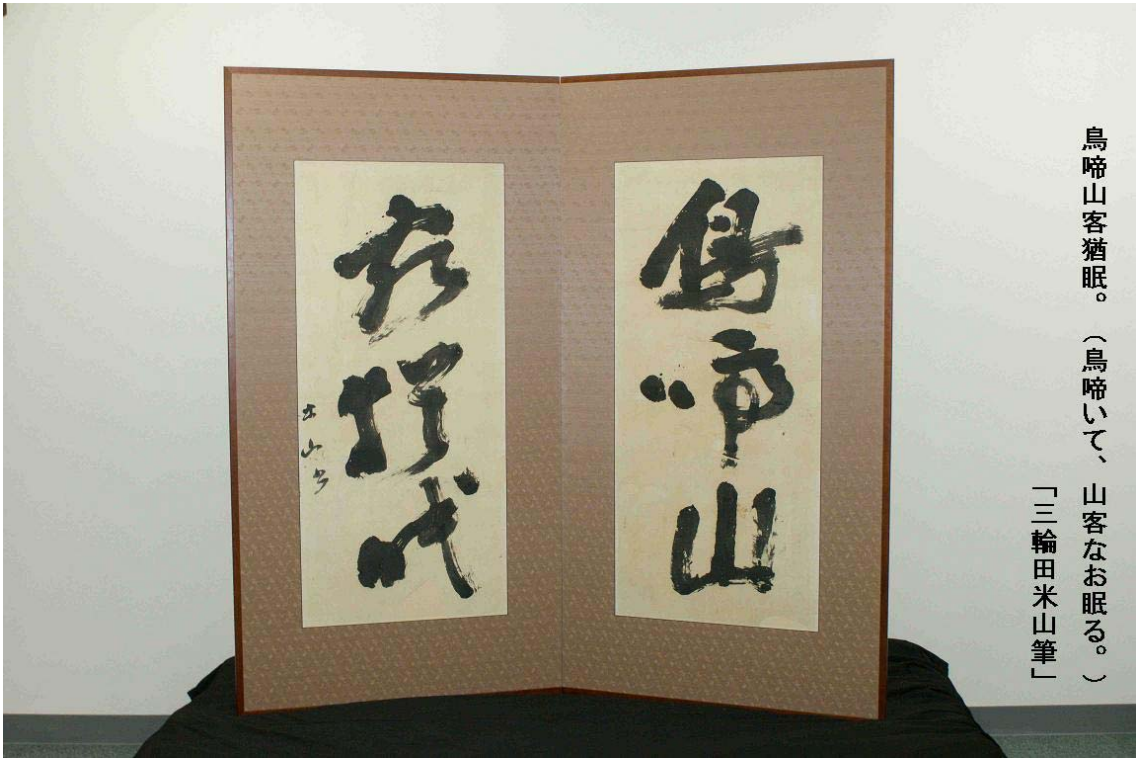 鳥啼山客猶眠。（鳥啼いて、山客なお眠る。）
「三輪田米山筆」
鳥啼山
客猶眠
米山書